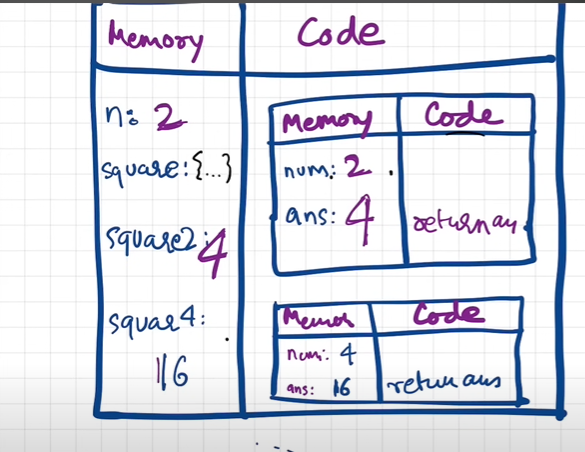 Memory Code
n: 2
square: {...}
square2: 4
squar4:
16
Memory Code
num: 2
ans: 4
return an
Memor Code
num: 4
ans: 16 return ans